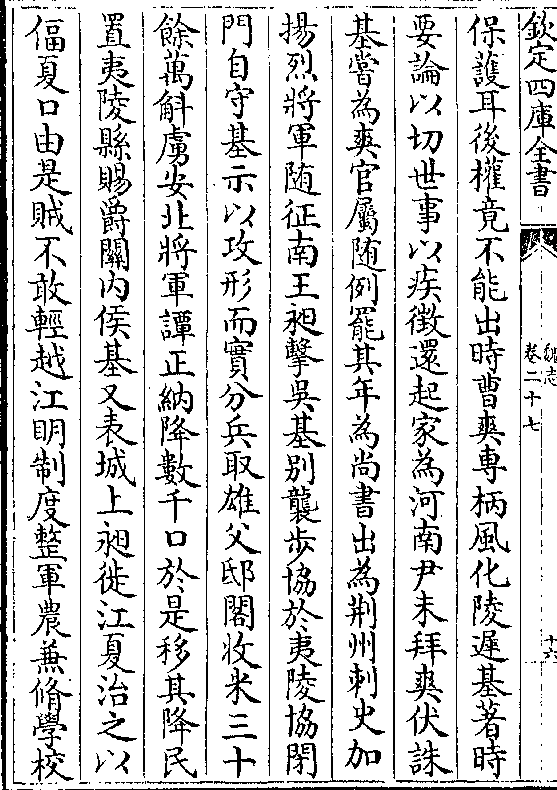 欽定四庫全書
魏志
卷二十七
十六
保護耳後權竟不能出時曹爽専柄風化陵遲基著時
要論以切世事以疾徴還起家為河南尹未拜爽伏誅
基嘗為爽官屬随例罷其年為尚書出為荆州刺史加
揚烈將軍随征南王昶擊吳基别襲步協於夷陵協閉
門自守基示以攻形而實分兵取雄父邸閣收米三十
餘萬斛虜安北將軍譚正納降數千口於是移其降民
置夷陵縣賜爵關内侯基又表城上昶徙江夏治之以
偪夏口由是賊不敢輕越江明制度整軍農兼脩學校